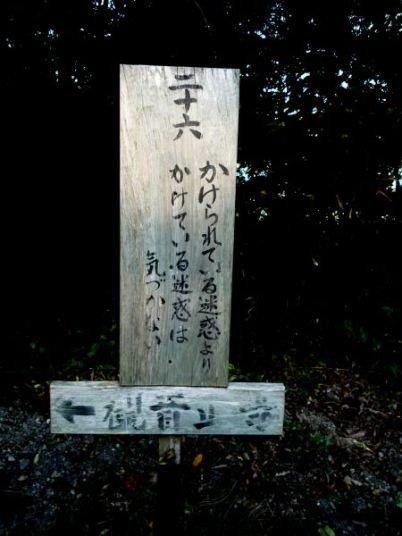 二十六
かけられている迷惑より
かけている迷惑は
気づかない
←観音正寺